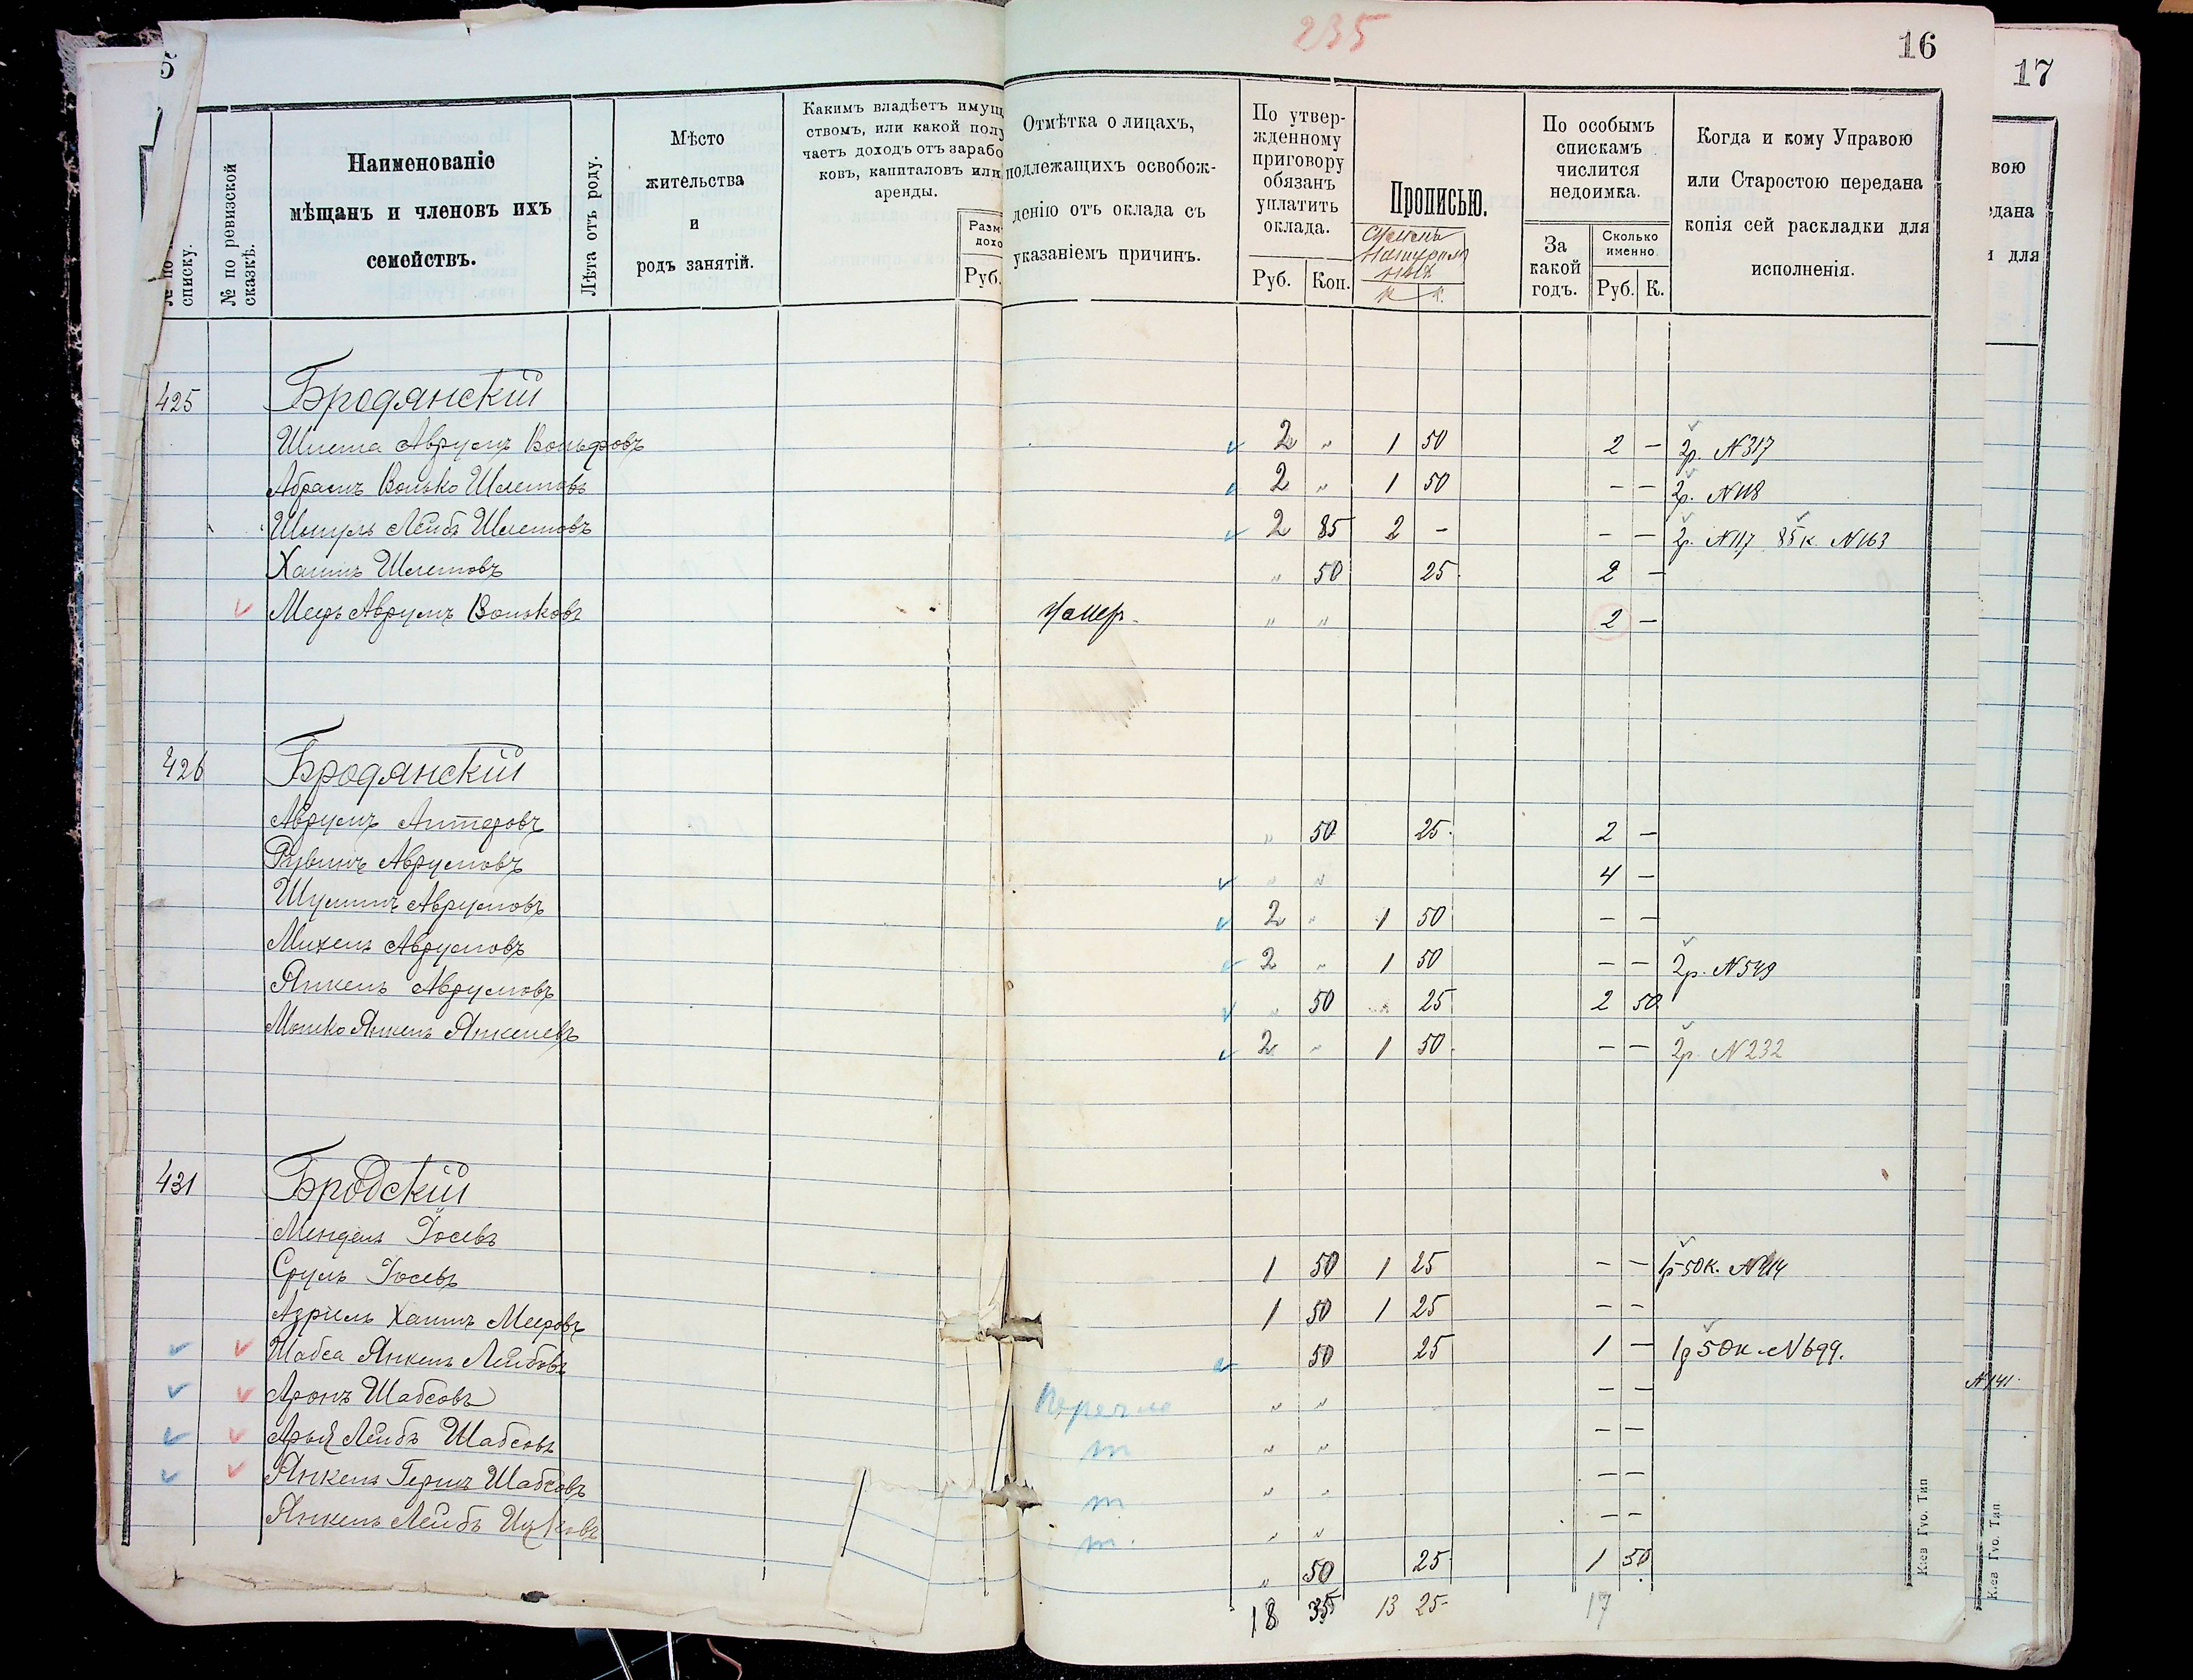 235
16
17
5
№ по списку.
№ по ревизской сказкѣ.
Наименованіе
мѣщанъ и членовъ ихъ
семействъ.
Лѣта отъ роду.
Мѣсто
жительства
и
родъ занятій.
Какимъ владѣетъ имущ
ствомъ, или какой полу
чаетъ доходъ отъ зарабо
ковъ, капиталовъ или
аренды.
Разм
дохо
Руб.
Отмѣтка о лицахъ,
подлежащихъ освобож-
денію отъ оклада съ
указаніемъ причинъ.
По утвер-
жденному
приговору
обязанъ
уплатить
оклада.
Руб. Коп.
Прописью.
По особымъ
спискамъ
числится
недоимка.
За
какой
годъ.
Сколько
именно
Руб. К.
Когда и кому Управою
или Старостою передана
копія сей раскладки для
исполненія.
вою
едана
и для
425 Бродянскій
Шлема Аврумъ Вольфовъ 2 „ 1 50 2 — 2р. N317
Абрамъ Волько Шлемовъ 2 „ 1 50 — — 2р. N118
Шмуль Лейбъ Шлемовъ 2 85 2 - — — 2р. N117 85к. N163
Хаимъ Шлемовъ „ 50 25 2 —
Мееръ Аврумъ Вольковъ Умер. „ „ 2 —
426 Бродянскій
Аврумъ Алтеровъ „ 50 25 2 —
Рувинъ Аврумовъ „ „ 4 —
Шулимъ Аврумовъ 2 „ 1 50 — —
Михель Аврумовъ 2 „ 1 50 — — 2р. N549
Янкель Аврумовъ „ 50 25 2 50
Мошко Янкель Янкелевъ 2 „ 1 50 — — 2р. N232
431 Бродскій
Мендель Іосевъ
Сруль Іосевъ 1 50 1 25 — — 1р 50к. N214
Азріель Хаимъ Мееровъ 1 50 1 25 — —
Шабса Янкель Лейбовъ 50 25 1 — 1р 50к. N699.
Аронъ Шабсовъ Перечис „ „ — —
Арый Лейбъ Шабсовъ т „ „ — —
Янкель Гершъ Шабсовъ т „ „ — —
Янкель Лейбъ Ицковъ т. „ „ — —
„ 50 25 1 50
18 35 13 25 17
N141
Кіев Губ. Тип
Кіев Губ. Тип